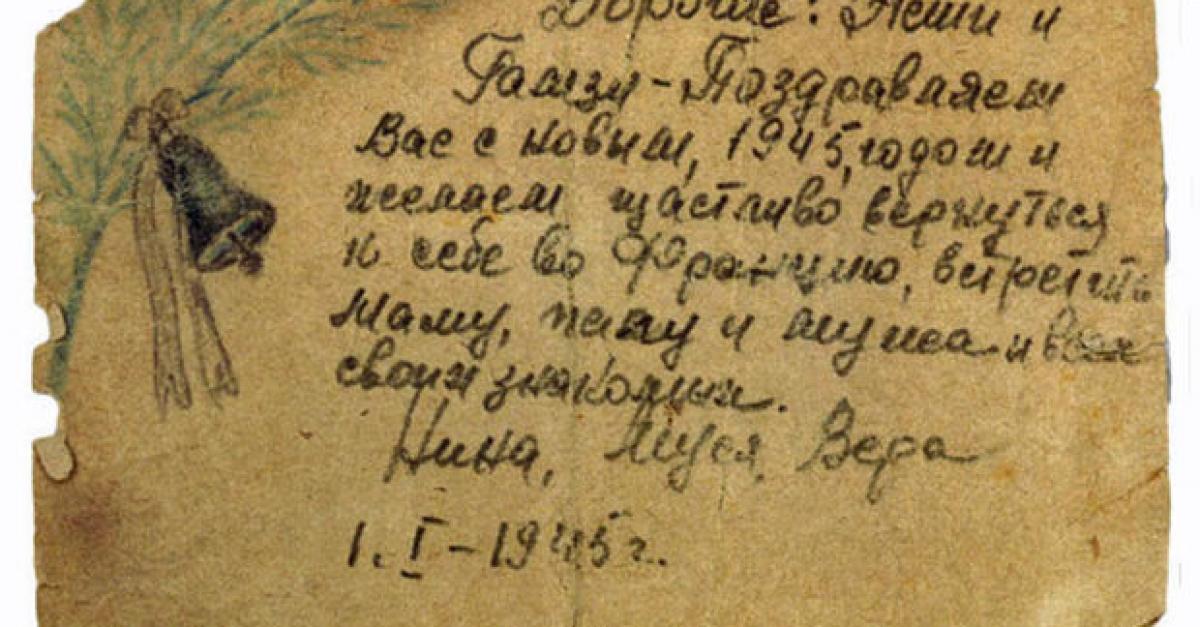 Дорогие: Нети и
Гамзи - Поздравляем
Вас с новым, 1945, годом и
желаем щастливо вернуться
к себе во Францию, встретить
маму, папу и мужа и всех
своих знакомых.
Нина, Муся, Вера
1. I - 1945 г.